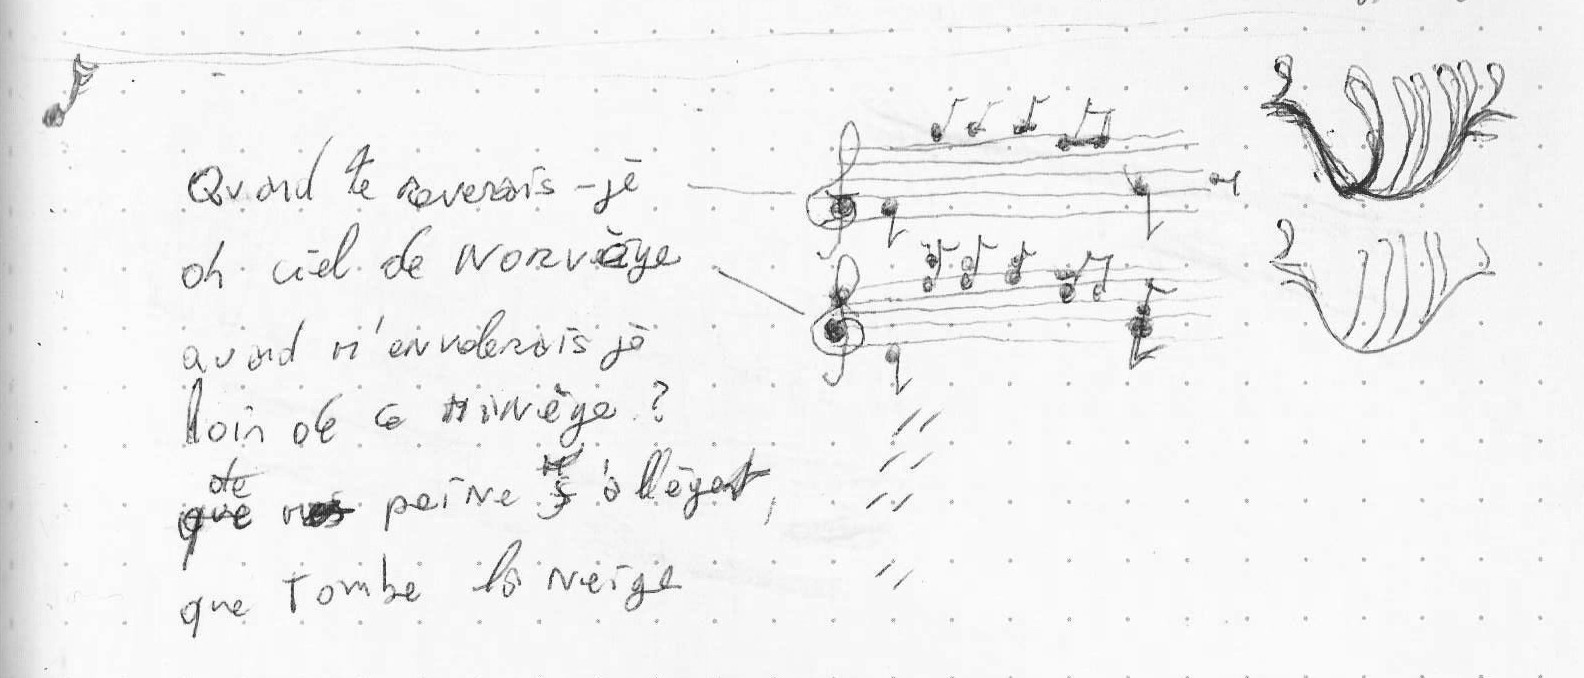 Quand te reverais-je
oh ciel de Norvège
quand m'envolerais je
loin de ce minège ?
de
que peine s'allègent,
que tombe la neige